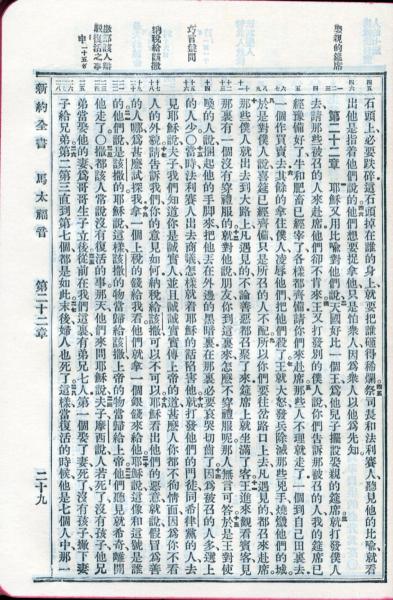 娶親的筵席
巧言盤問
納稅給該撒
撒都該人辯
駁復活之事
石頭上必要跌碎這石頭掉在誰的身上就要把誰砸得稀爛祭司長和法利賽人聽見他的比喻就看
出他是指着他們說的他們想要捉拿他只是怕衆人因爲衆人以他爲先知
第二十二章 耶穌又用比喻對他們說天國好比一個王爲他兒子擺設娶親的筵席就打發僕人
去請那些被召的人來赴席他們卻不肯來王又打發別的僕人說你們告訴那被召的人我的筵席已
經豫備好了牛和肥畜已經宰了各樣都齊備請你們來赴席那些人不理就走了一個到自己田裏去
一個作買賣去其餘的拿住僕人凌辱他們把他們殺了王就大怒發兵除滅那些兇手燒燬他們的城
於是對僕人說喜筵已經齊備只是所召的人不配所以你們要往岔路口上去凡遇見的都召來赴席
那些僕人就出去到大路上凡遇見的不論善惡都召聚了來筵席上就坐滿了客王進來觀看賓客見
那裏有一個沒有穿禮服的就對他說朋友你到這裏來怎麼不穿禮服呢那人無言可答於是王對使
喚的人說捆起他的手脚來把他丟在外邊的黑暗裏在那裏必要哀哭切齒了因爲被召的人多選上
的人少○當時法利賽人出去商議怎樣就着耶穌的話陷害他就打發他們的門徒同希律黨的人去
見耶穌說夫子我們知道你是誠實人並且誠誠實實傳上帝的道甚麼人你都不徇情面因爲你不看
人的外貌請告訴我們你的意見如何納稅給該撒可以不可以耶穌看出他們的惡意就說假冒爲善
的人哪爲甚麼試探我拿一個上稅的錢給我看他們就拿一個銀錢來給他耶穌說這像和這號是誰
的他們說是該撒的耶穌說這樣該撒的物當歸給該撒上帝的物當歸給上帝他們聽見就希奇離開
他走了○撒都該人常說沒有復活的事那天他們來問耶穌說夫子摩西說人若死了沒有孩子他兄
弟當娶他的妻爲哥哥生子立後從前在我們這裏有弟兄七人第一個娶了妻死了沒有孩子撇下妻
子給兄弟第二第三直到第七個都是如此末後婦人也死了這樣當復活的時候他是七個人中那一
新約全書 馬太福音 第二十二章 二十九